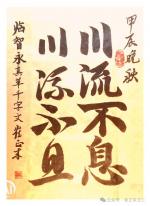 甲辰晚秋
川流不息
川流不息
临智永真草千字文崔正来